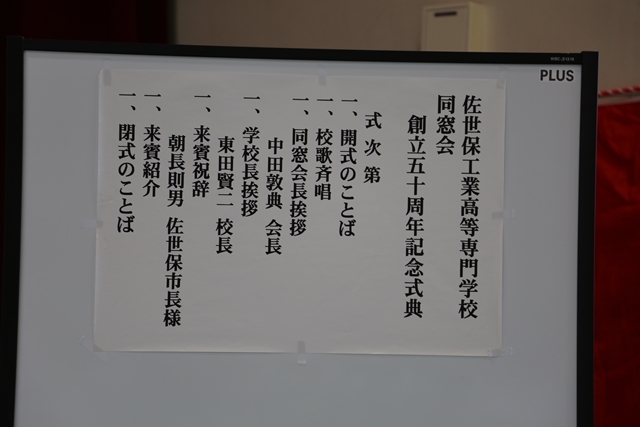 佐世保工業高等専門学校
同窓会
創立五十周年記念式典
式次第
一、開式のことば
一、校歌斉唱
一、同窓会長挨拶
中田敦典 会長
一、学校長挨拶
東田賢二 校長
一、来賓祝辞
朝長則男 佐世保市長様
一、来賓紹介
一、閉式のことば
PLUS